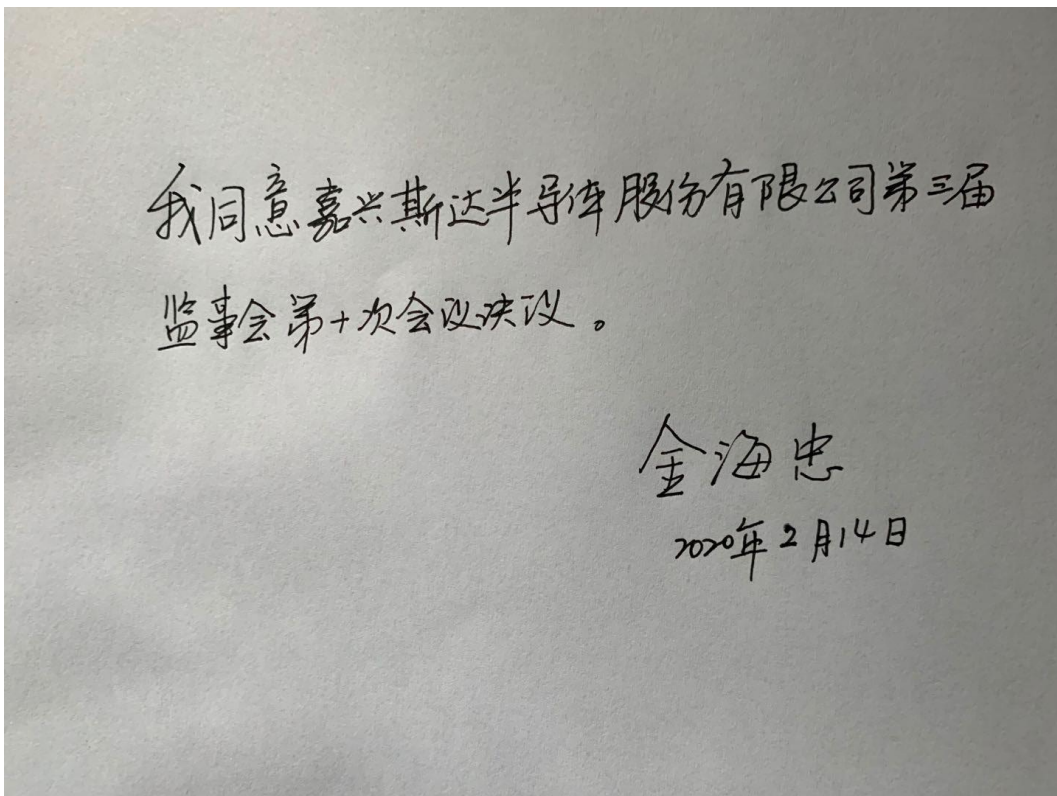 我同意嘉兴斯达半导体股份有限公司第三届
监事会第十次会议决议。
金海忠
2020年2月14日